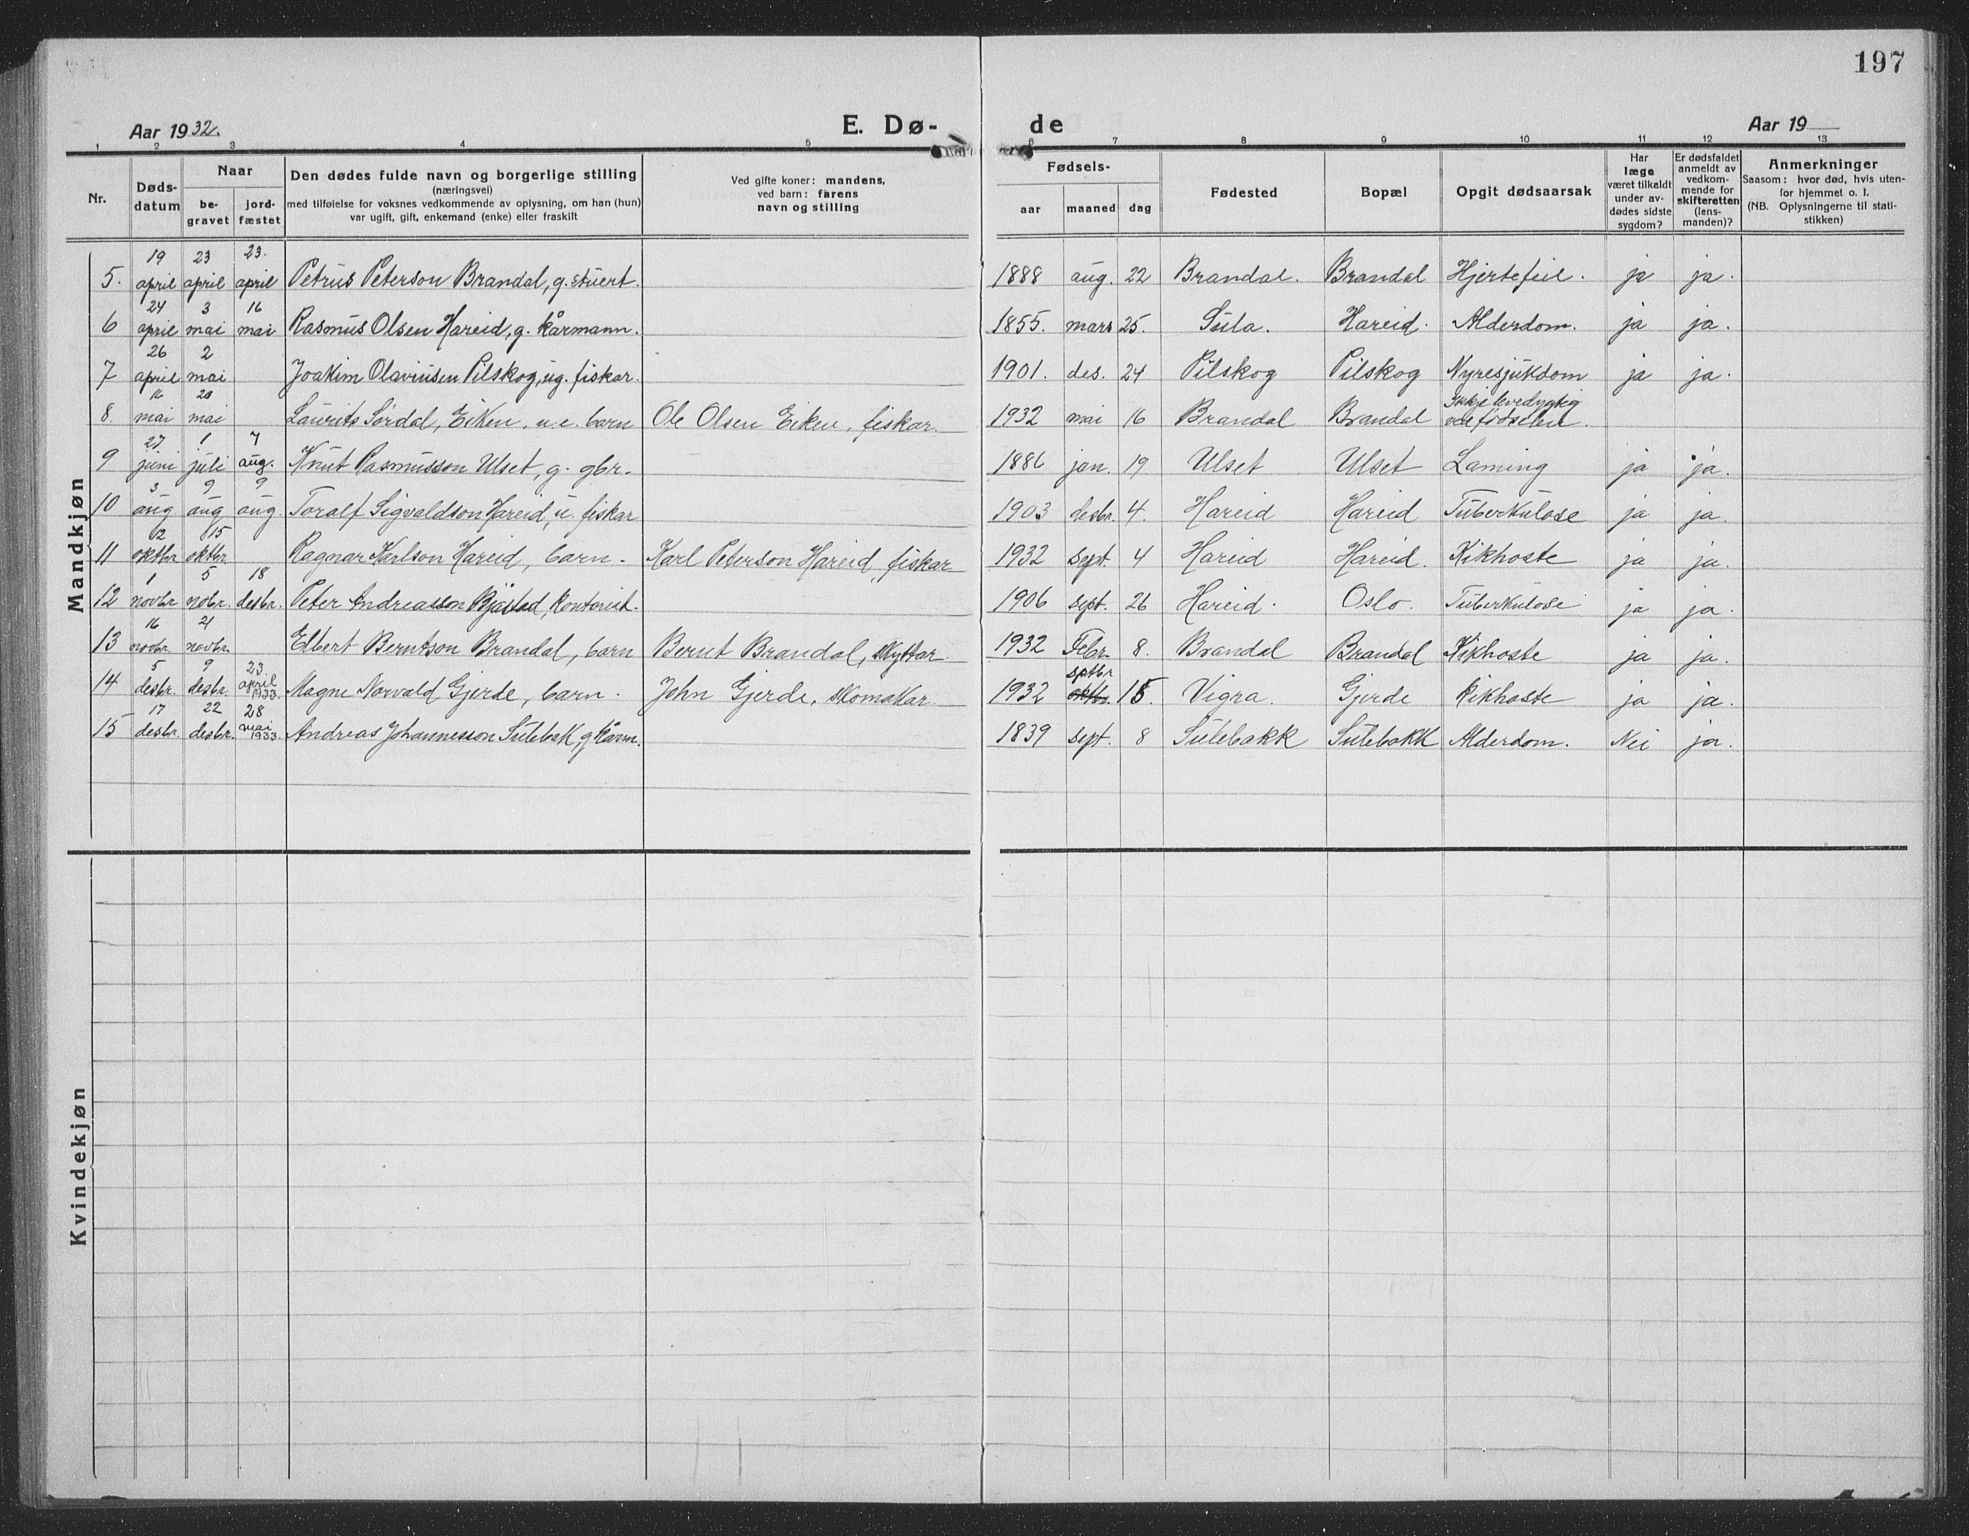 197
Aar 1932.
E. Dø-
de
Aar 19
1 2 3 4 5 6 7 8 9 10 11 12 13
Nr.
Døds-
datum
Naar
be-
gravet
jord-
fæstet
Den dødes fulde navn og borgerlige stilling
(næringsvei)
med tilføielse for voksnes vedkommende av oplysning, om han (hun)
var ugift, gift, enkemand (enke) eller fraskilt
Ved gifte koner: mandens,
ved barn: farens
navn og stilling
Fødsels-
aar
maaned
dag
Fødested
Bopæl
Opgit dødsaarsak
Har
læge
været tilkaldt
under av-
dødes sidste
sygdom?
Er dødsfaldet
anmeldt av
vedkom-
mende for
skifteretten
(lens-
manden)?
Anmerkninger
Saasom: hvor død, hvis uten-
for hjemmet o. l.
(NB. Oplysningerne til stati-
stikken)
Mandkjøn
5. 19 april 23 april 23. april Petrus Peterson Brandal, g. stuert. 1888 aug. 22 Brandal. Brandal Hjertefeil. ja ja.
6 24 april 3 mai 16 mai Rasmus Olsen Hareid, g. kårmann. 1855. mars 25. Sula. Hareid. Alderdom. ja ja.
7 26 april 2 mai Joakim Olavussen Pilskog, ug. fiskar. 1901. des. 24 Pilskog Pilskog Nyresjukdom ja ja.
8. 16 mai 20 mai Laurits Sørdal, Eiken, u.e. barn Ole Olsen Eiken, fiskar. 1932 mai 16 Brandal Brandal Ikkje levedygtig ved fødselen.
9 27 juni 1 juli 7 aug. Knut Rasmusson Ulset, g. gbr. 1886 jan. 19 Ulset Ulset Laming ja ja.
10 3 aug 9 aug 9 aug. Toralf Sigvaldson Hareid, u. fiskar 1903 desbr. 4. Hareid Hareid Tuberkulose ja ja.
11 12 oktbr 15 oktbr. Ragnar Karlson Hareid, barn. Karl Peterson Hareid, fiskar 1932 sept. 4 Hareid Hareid. Kikhoste ja ja.
12 1 novbr 5 nobr. 18 desbr. Peter Andreasson Bjåstad, kontorist. 1906 sept. 26 Hareid. Oslo. Tuberkulose ja ja.
13 16 novbr 21 novbr. Elbert Berntson Brandal, barn Bernt Brandal, skyttar. 1932 Febr. 8. Brandal Brandal Kikhoste ja ja.
14 5 desbr. 9 desbr. 23. april 1933. Magne Norvald Gjerde, barn. John Gjerde, skomakar. 1932 sptbr oktbr. 15 Vigra. Gjerde Kikhoste ja ja.
15 17 desbr. 22 desbr. 28 mai 1933. Andreas Johannesson Sulebak, g kårm. 1839 sept. 8 Sulebakk Sulebakk Alderdom. Nei ja.
Kvindekjøn